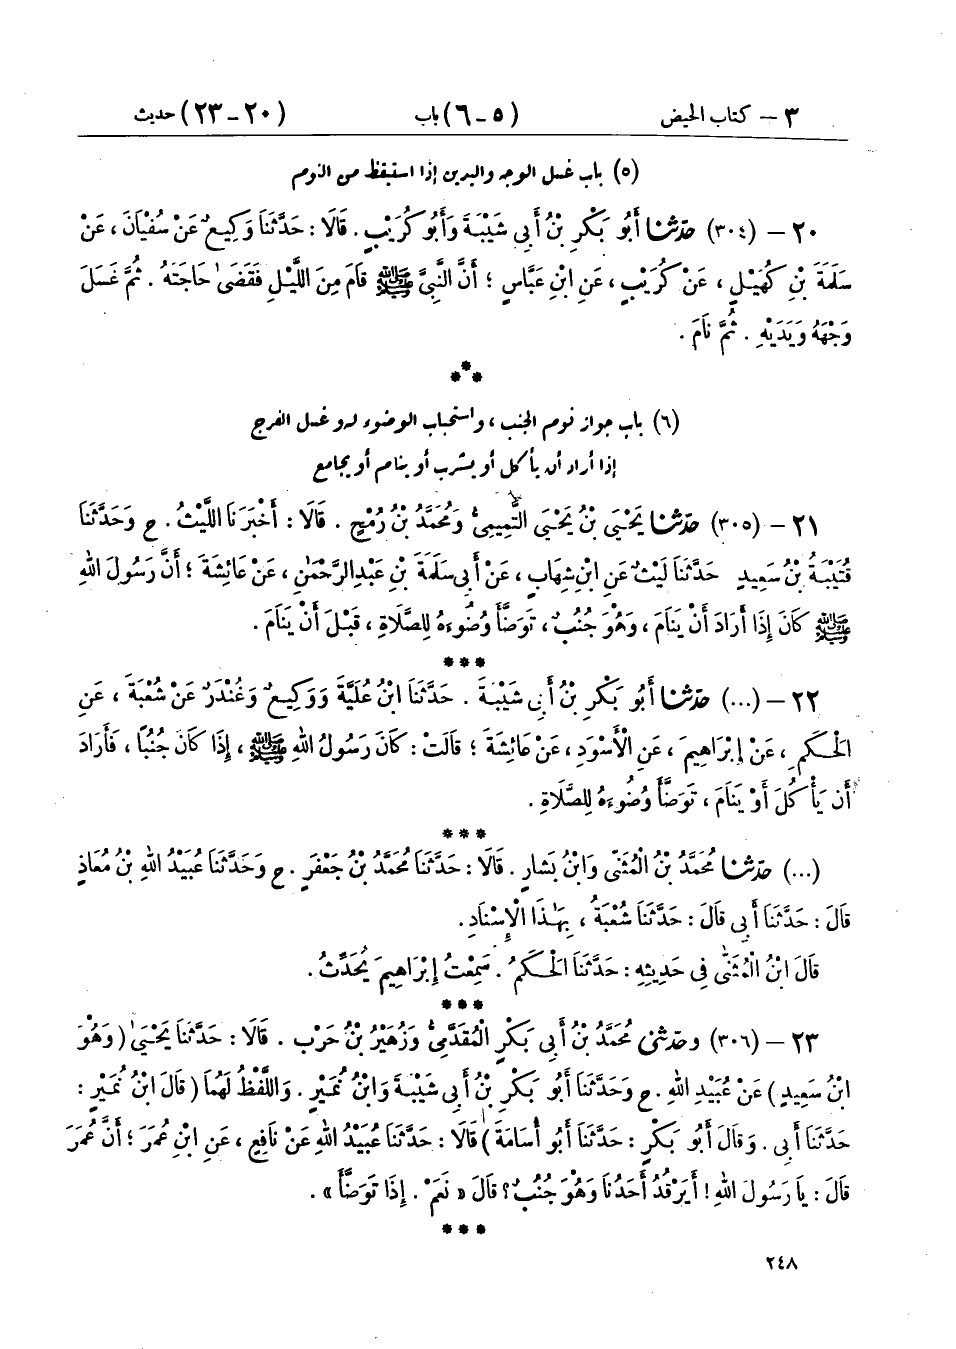 ٣ — كتاب الحيض (٥ ـ ٦) باب (٢٠ ـ ٢٣) حديث
(٥) باب غسل الوجه واليدين إذا استيقظ من النوم
٢٠ — (٣٠٤) حدّثنا أَبُو بَكْرِ بْنُ أَبِي شَيْبَةَ وَأَبُو كُرَيْبٍ . قَالَا : حَدَّثَنَا وَكِيعٌ عَنْ سُفْيَانَ ، عَنْ
سَلَمَةَ بْنِ كُهَيْلٍ ، عَنْ كُرَيْبٍ ، عَنِ ابْنِ عَبَّاسٍ ؛ أَنَّ النَّبِيَّ ﷺ قَامَ مِنَ اللَّيْلِ فَقَضَىٰ حَاجَتَهُ . ثُمَّ غَسَلَ
وَجْهَهُ وَيَدَيْهِ . ثُمَّ نَامَ .
***
(٦) باب جواز نوم الجنب ، واستحباب الوضوء له وغسل الفرج
إذا أراد أن يأكل أو يشرب أو ينام أو يجامع
٢١ — (٣٠٥) حدّثنا يَحْيَى بْنُ يَحْيَى التَّمِيمِىُّ وَمُحَمَّدُ بْنُ رُمْحٍ . قَالَا : أَخْبَرَنَا اللَّيْثُ . ح وَحَدَّثَنَا
قُتَيْبَةُ بْنُ سَعِيدٍ حَدَّثَنَا لَيْثٌ عَنِ ابْنِ شِهَابٍ ، عَنْ أَبِي سَلَمَةَ بْنِ عَبْدِ الرَّحْمٰنِ ، عَنْ عَائِشَةَ ؛ أَنَّ رَسُولَ اللهِ
ﷺ كَانَ إِذَا أَرَادَ أَنْ يَنَامَ ، وَهُوَ جُنُبٌ ، تَوَضَّأَ وُضُوءَهُ لِلصَّلَاةِ ، قَبْلَ أَنْ يَنَامَ .
***
٢٢ — (...) حدّثنا أَبُو بَكْرِ بْنُ أَبِي شَيْبَةَ . حَدَّثَنَا ابْنُ عُلَيَّةَ وَوَكِيعٌ وَغُنْدَرٌ عَنْ شُعْبَةَ ، عَنِ
الْحَكَمِ ، عَنْ إِبْرَاهِيمَ ، عَنِ الْأَسْوَدِ ، عَنْ عَائِشَةَ ؛ قَالَتْ : كَانَ رَسُولُ اللهِ ﷺ ، إِذَا كَانَ جُنُبًا ، فَأَرَادَ
أَن يَأْكُلَ أَوْ يَنَامَ ، تَوَضَّأَ وُضُوءَهُ لِلصَّلَاةِ .
***
(...) حدّثنا مُحَمَّدُ بْنُ الْمُثَنَّى وَابْنُ بَشَارٍ . قَالَا : حَدَّثَنَا مُحَمَّدُ بْنُ جَعْفَرٍ . ح وَحَدَّثَنَا عُبَيْدُ اللهِ بْنُ مُعَاذٍ
قَالَ : حَدَّثَنَا أَبِي قَالَ : حَدَّثَنَا شُعْبَةُ ، بِهَـٰذَا الْإِسْنَادِ .
قَالَ ابْنُ الْمُثَنَّى فِي حَدِيثِهِ : حَدَّثَنَا الْحَكَمُ . سَمِعْتُ إِبْرَاهِيمَ يُحَدِّثُ .
***
٢٣ — (٣٠٦) وحدّثني مُحَمَّدُ بْنُ أَبِي بَكْرٍ الْمُقَدَّمِىُّ وَزُهَيْرُ بْنُ حَرْبٍ . قَالَا : حَدَّثَنَا يَحْيَىٰ (وَهُوَ
ابْنُ سَعِيدٍ) عَنْ عُبَيْدِ اللهِ . ح وَحَدَّثَنَا أَبُو بَكْرِ بْنُ أَبِي شَيْبَةَ وَابْنُ نُمَيْرٍ . وَاللَّفْظُ لَهُمَا (قَالَ ابْنُ نُمَيْرٍ :
حَدَّثَنَا أَبِي . وَقَالَ أَبُو بَكْرٍ : حَدَّثَنَا أَبُو أُسَامَةَ) قَالَا : حَدَّثَنَا عُبَيْدُ اللهِ عَنْ نَافِعٍ ، عَنِ ابْنِ عُمَرَ ؛ أَنَّ عُمَرَ
قَالَ : يَا رَسُولَ اللهِ ! أَيَرْقُدُ أَحَدُنَا وَهُوَ جُنُبٌ ؟ قَالَ « نَعَمْ . إِذَا تَوَضَّأَ » .
***
٢٤٨